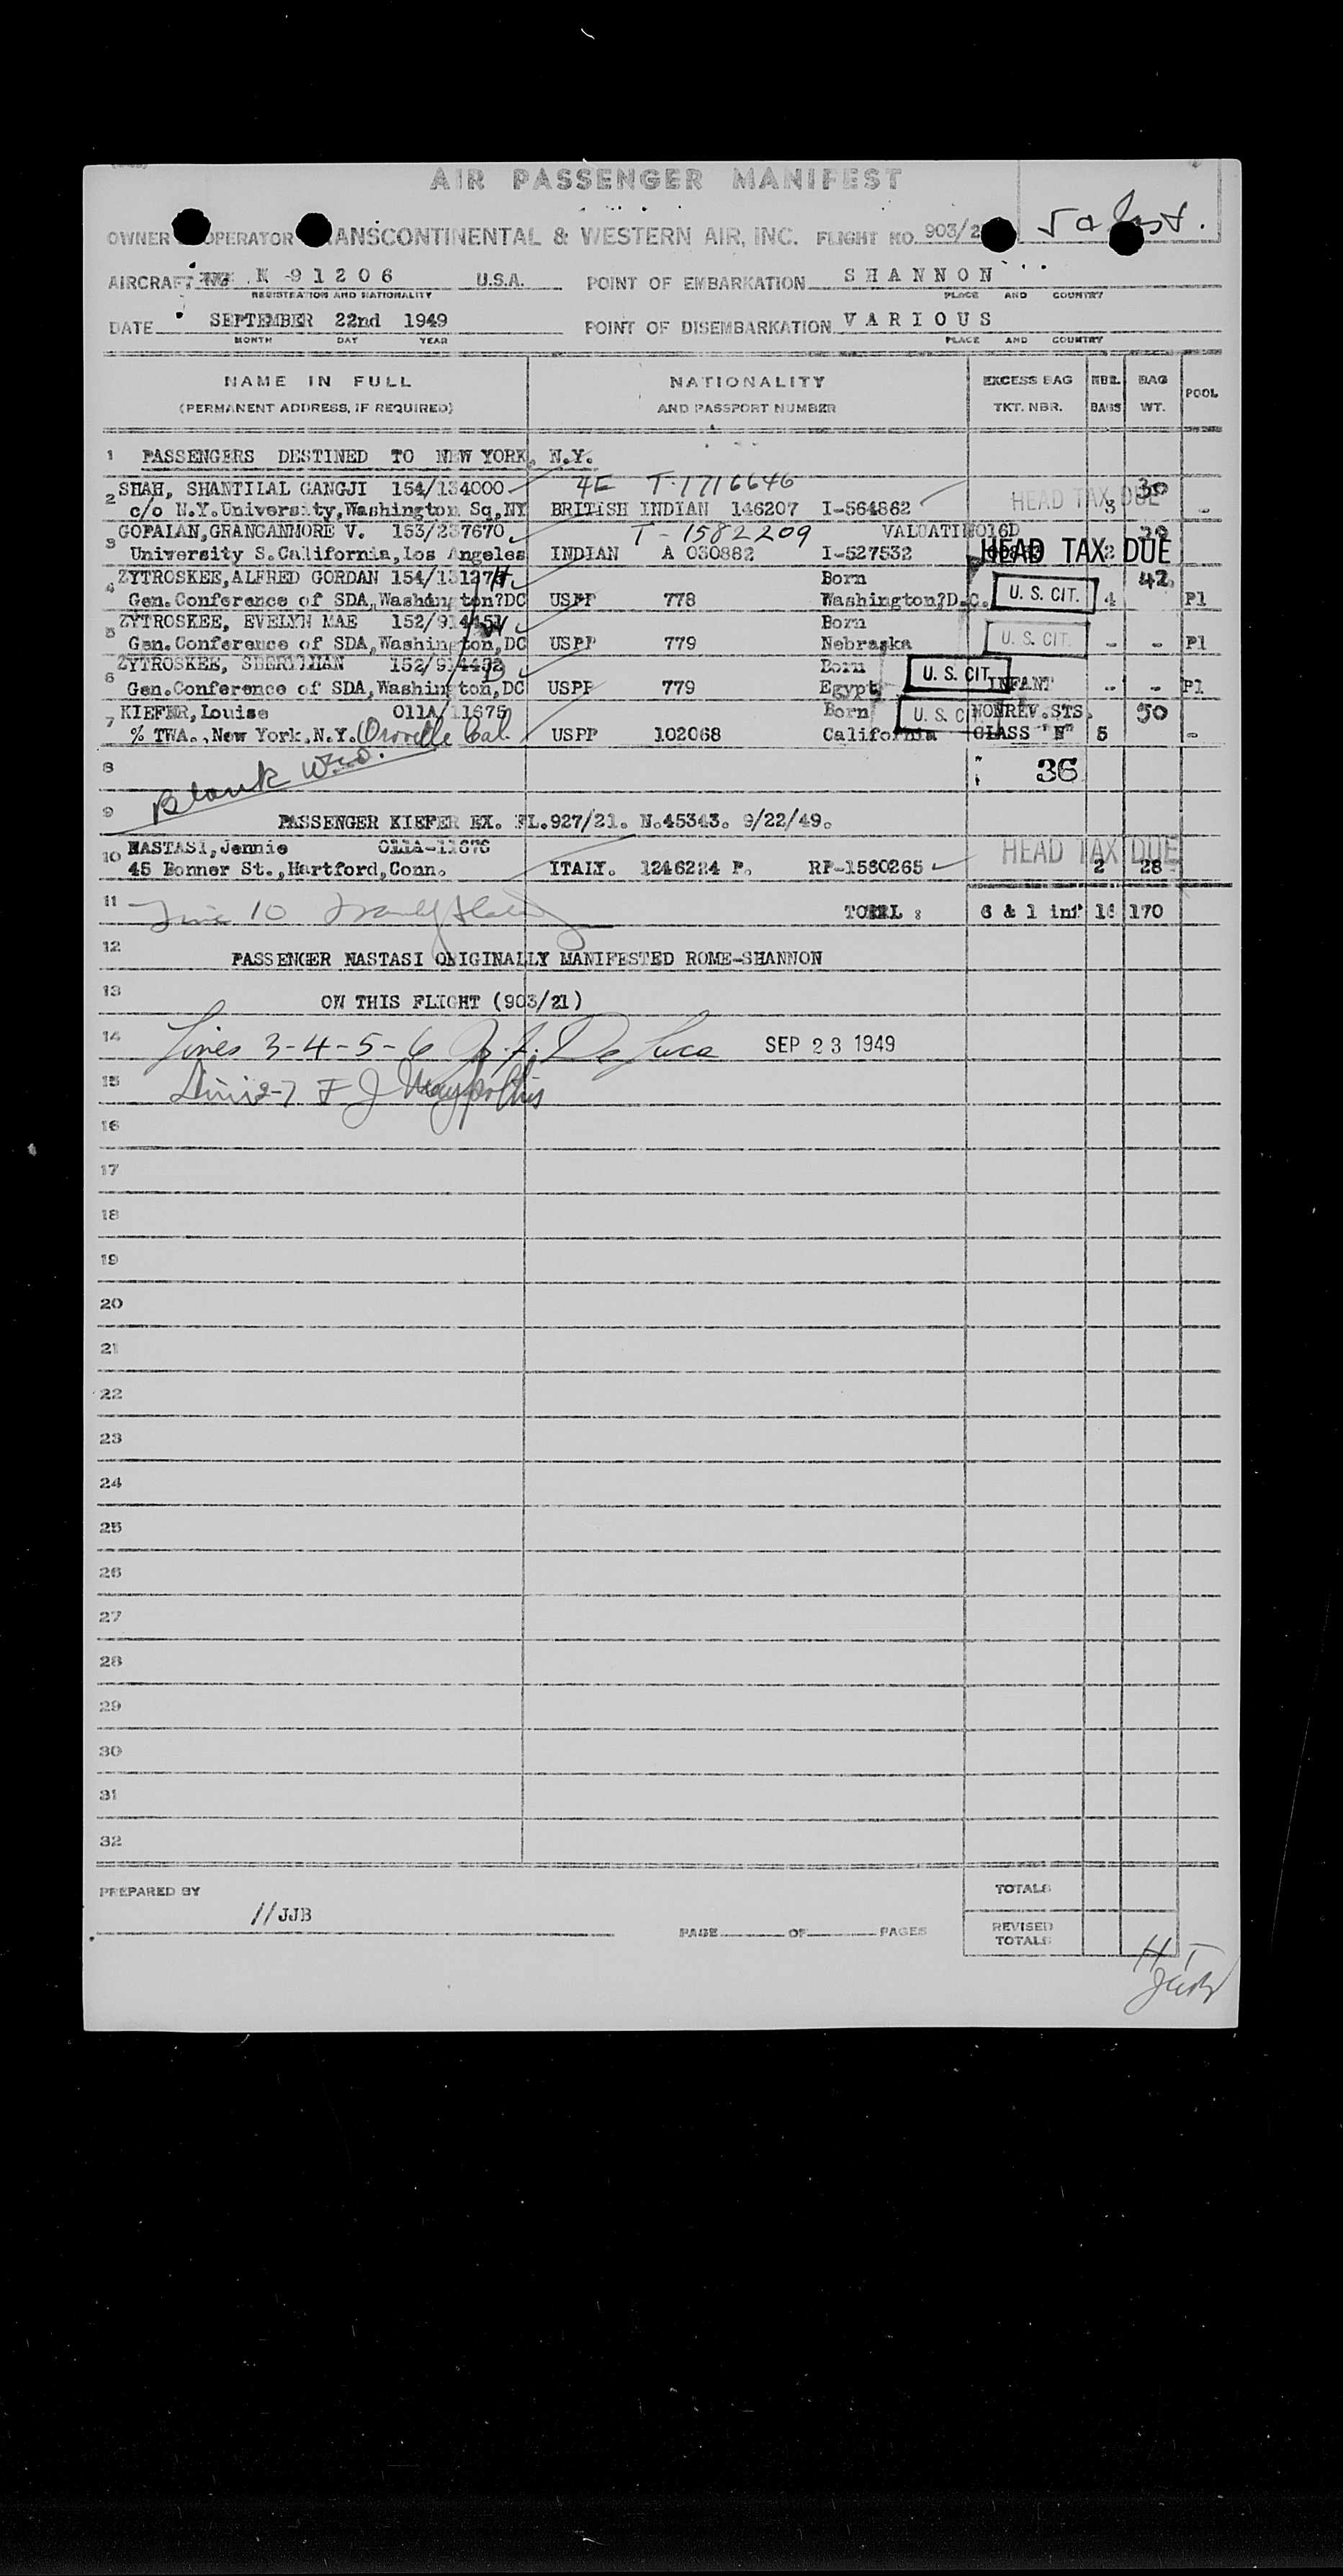 AIR PASSENGER MANIFEST
5 a
OWNER OPERATOR TRANSCONTINENTAL & WESTERN AIR, INC. FLIGHT NO. 903/2
AIRCRAFT N -91206 U.S.A. POINT OF EMBARKATION SHANNON
REGISTRATION AND NATIONALITY PLACE AND COUNTRY
DATE SEPTEMBER 22nd 1949 POINT OF DISEMBARKATION VARIOUS
MONTH DAY YEAR PLACE AND COUNTRY
NAME IN FULL NATIONALITY EXCESS BAG NBR. BAG POOL
(PERMANENT ADDRESS, IF REQUIRED) AND PASSPORT NUMBER TKT. NBR. BAGS WT.
1 PASSENGERS DESTINED TO NEW YORK, N.Y.
2 SHAH, SHANTILAL GANGJI 154/134000 4E T-1716646 30
c/o N.Y.University,Washington Sq,NY BRITISH INDIAN 146207 I-564862 HEAD TAX DUE 3 -
3 GOPALAN,GRANGANMORE V. 153/237670 T-1582209 VALUATION 20
University S.California,Los Angeles INDIAN A 030882 I-527532 HEAD TAX DUE 2
4 ZYTROSKEE,ALFRED GORDAN 154/131274 H Born 42
Gen.Conference of SDA,Washington?DC USPP 778 Washington?D.C. U. S. CIT. 4 Pl
5 ZYTROSKEE, EVELYN MAE 152/914451 W Born
Gen.Conference of SDA,Washington,DC USPP 779 Nebraska U. S. CIT. - - Pl
6 ZYTROSKEE, 152/914452 Born
Gen.Conference of SDA,Washington,DC USPP 779 Egypt U. S. CIT. INFANT - - Pl
7 KIEFER,Louise 011A/11675 Born U. S. C NONREV.STS. 50
% TWA.,New York,N.Y. Oroville Cal. USPP 102068 California CLASS "N" 5 -
8 36
Blank
9 PASSENGER KIEFER EX. FL.927/21. N.45343. 9/22/49.
10 NASTASI,Jennie 011A-11676 HEAD TAX DUE
45 Bonner St.,Hartford,Conn. ITALY. 1246224 P. RP-1580265 2 28
11 Line 10 TOTAL : 6 & 1 inf 16 170
12 PASSENGER NASTASI ORIGINALLY MANIFESTED ROME-SHANNON
13 ON THIS FLIGHT (903/21)
14 Lines 3-4-5-6 De Luca SEP 23 1949
15 F J
16
17
18
19
20
21
22
23
24
25
26
27
28
29
30
31
32
PREPARED BY TOTALS
//JJB
PAGE OF PAGES REVISED TOTALS
HT